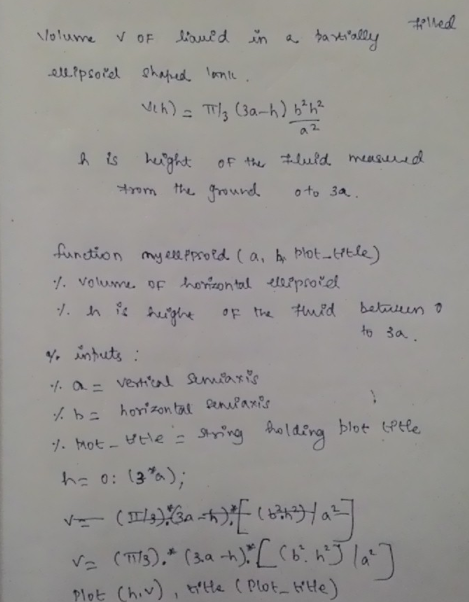 Volume V of liquid in a partially filled
ellipsoid shaped tank.
V(h) = π/3 (3a-h) b²h²/a²
h is height of the fluid measured
from the ground 0 to 3a.
function myellipsoid (a, b, plot_title)
% volume of horizontal ellipsoid
% h is height of the fluid between 0
to 3a.
% inputs :
% a = vertical semiaxis
% b = horizontal semiaxis
% Plot_title = string holding plot title
h = 0: (3*a);
v = (π/3).*(3a-h).*[(b².h²)/a²]
v = (π/3).* (3a-h).*[(b². h²)/a²]
Plot (h,v), title (Plot_title)